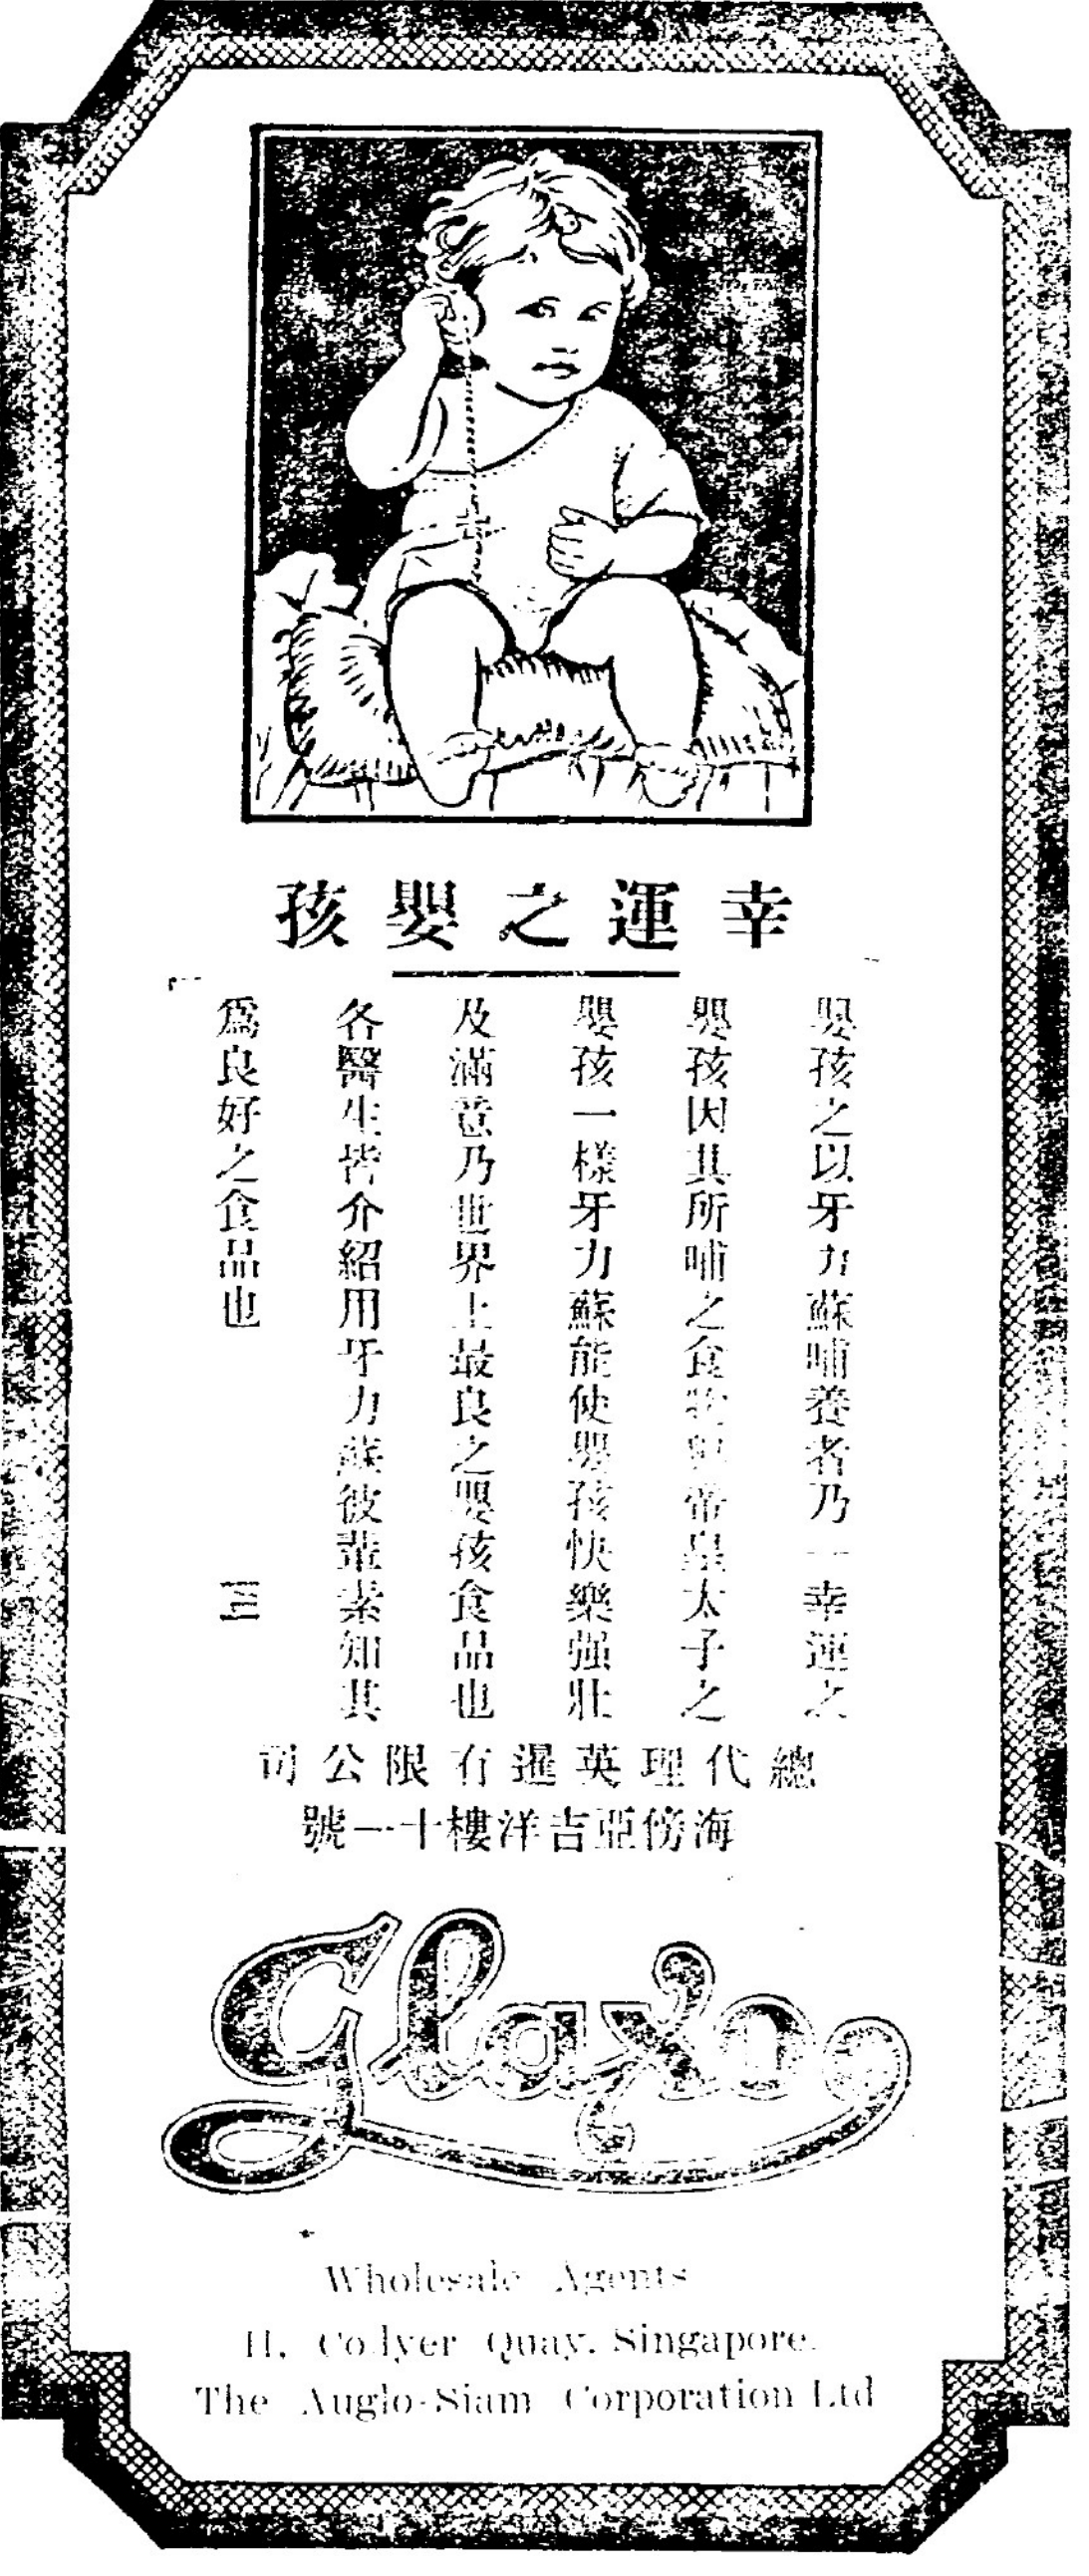 幸運之嬰孩
嬰孩之以牙力蘇哺養者乃一幸運之
嬰孩因其所哺之食物與帝皇太子之
嬰孩一樣牙力蘇能使嬰孩快樂强壯
及滿意乃世界上最良之嬰孩食品也
各醫生皆介紹用牙力蘇彼輩素知其
爲良好之食品也 三
總代理英暹有限公司
海傍亞吉洋樓十一號
Glaxo
Wholesale Agents
11, Collyer Quay, Singapore.
The Auglo-Siam Corporation Ltd